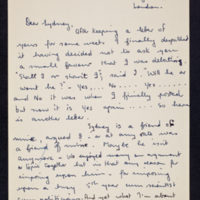 London.
Dear Sydney,
After keeping a letter of
yours for some weeks I finally despatched
it having decided not to ask you
a small favour that I was debating
'Shall I or shan't I', said I. 'Will he or
won't he? - Yes... No... Yes
and No it was when I finally posted
but now it is Yes again. So here
is another letter.
Sydney is a friend of
mine, argued I - or at any rate was
a friend of mine. Maybe he isn't
anymore. We enjoyed many an argument
together but was that any reason for
imposing upon him - for imposing
upon a busy 5th year
and what I'm about